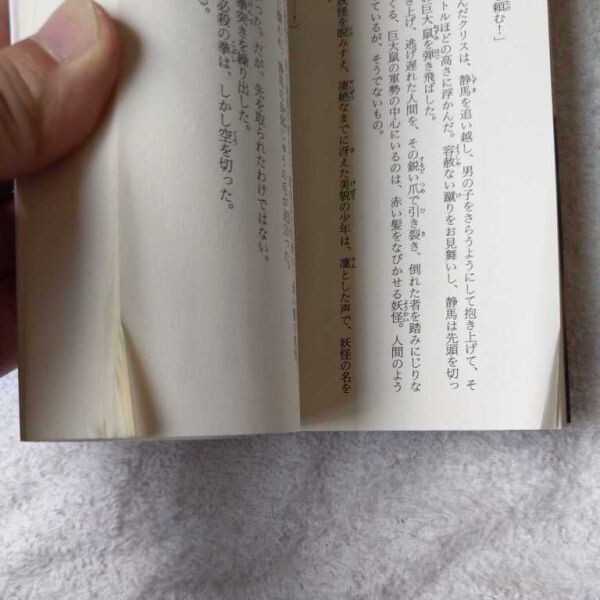 頼む！」
んだクリスは、静馬を追い越し、男の子をさらうようにして抱き上げて、そ
トルほどの高さに浮かんだ。容赦ない蹴りをお見舞いし、静馬は先頭を切っ
の巨大鼠を弾き飛ばした。
き上げ、逃げ遅れた人間を、その鋭い爪で引き裂き、倒れた者を踏みにじりな
くる、巨大鼠の軍勢の中心にいるのは、赤い髪をなびかせる妖怪。人間のよう
ているが、そうでないもの。
妖怪を睨みすえ、凄絶なまでに冴えた美貌の少年は、凜とした声で、妖怪の名を
…！」
った。だが、先を取られたわけではない。
拳突きを繰り出した。
必殺の拳は、しかし空を切った。
る。